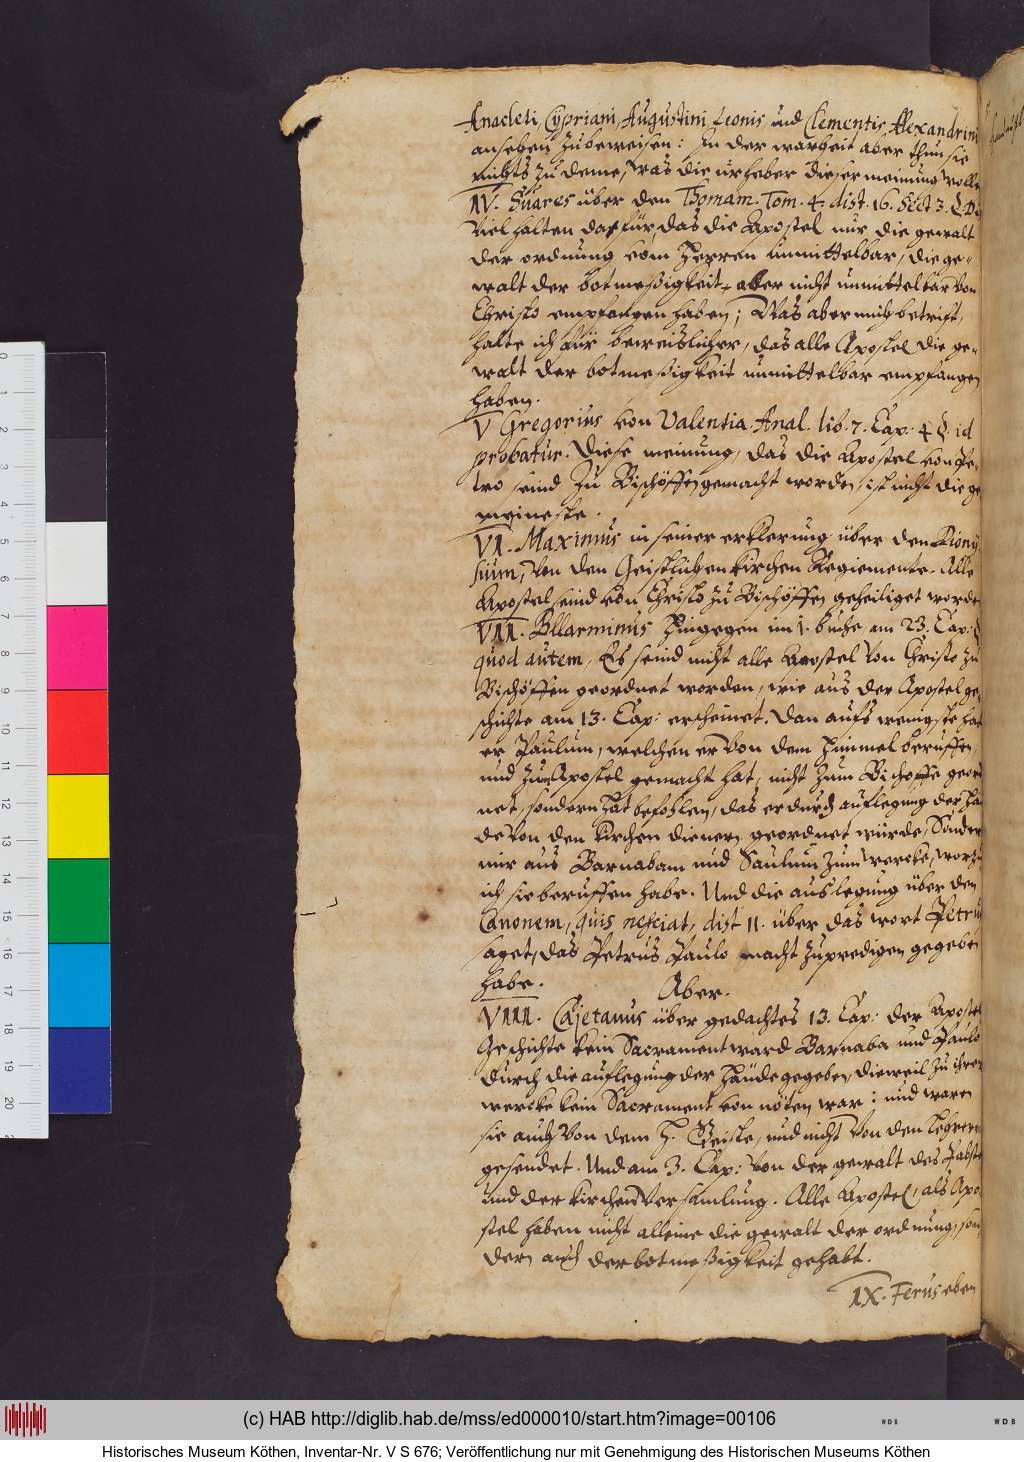 Anacleti, Cypriani, Augustini, Leonis, und Clementis Alexandrini
ansehen zubeweisen: In der warheit aber thun sie
nichts zu deme, was die urheber dieser meinung wolle
IV. Suares über den Thomam. Tom. 4. dist. 16. Sect. 3. §.
Viel halten darfür, das die Apostel nur die gewalt
der ordnung vom Herren unmittelbar, die ge-
walt der botmeßigkeit aber nicht unmittelbar von
Christo empfangen haben; Was aber mich betrift,
halte ich für beweislicher, das alle Apostel die ge-
walt der botmeßigkeit unmittelbar empfangen
haben.
V Gregorius von Valentia. Anal. lib. 7. Cap: 4 §. id
probatur. Diese meinung, das die Apostel von Pe-
tro seind zu Bischöffen gemacht worden, ist nicht die ge
meineste.
VI. Maximus in seiner erklerung über den Diony
sium, von den Geistlichen kirchen Regimente. Alle
Apostel seind von Christo zu Bischöffen geheiliget worden
VII. Bllarminus hingegen im 1. buche, am 23. Cap: §
quod autem. Es seind nicht alle Apostel von Christo zu
Bischöffen geordnet worden, wie aus der Apostel ge
schichte am 13. Cap: erscheinet. Dan aufs wenigste hat
er Paulum, welchen er von dem himmel beruffen,
und zum Apostel gemacht hat, nicht zum Bischoffe geord
net, sondern hat befohlen, das er durch auflegung der hän
de von den kirchen dienern geordnet würde, Sonder
mir aus Barnabam und Saulum zum wercke, worzu
ich sie beruffen habe. Und die auslegung über den
Canonem, quis nesciat, dist 11. über das wort Petrus
saget, das Petrus Paulo macht zupredigen gegeben
habe. Aber.
VIII. Cajetanus über gedachtes 13. Cap: der Apostel
Geschichte kein Sacrament ward Barnaba und Paulo
durch die auflegung der hände gegeben, dieweil zu ihrem
wercke kein Sacrament von nöten war: und waren
sie auch von dem H. Geiste, und nicht von den Lehrern
gesendet. Und am 3. Cap: von der gewalt des Pabsts
und der kirchen Versamlung. Alle Apostel, als Apo
stel haben nicht alleine die gewalt der ordnung, son
dern auch der botmeßigkeit gehabt.
IX. Ferus eben
(c) HAB http://diglib.hab.de/mss/ed000010/start.htm?image=00106
Historisches Museum Köthen, Inventar-Nr. V S 676; Veröffentlichung nur mit Genehmigung des Historischen Museums Köthen